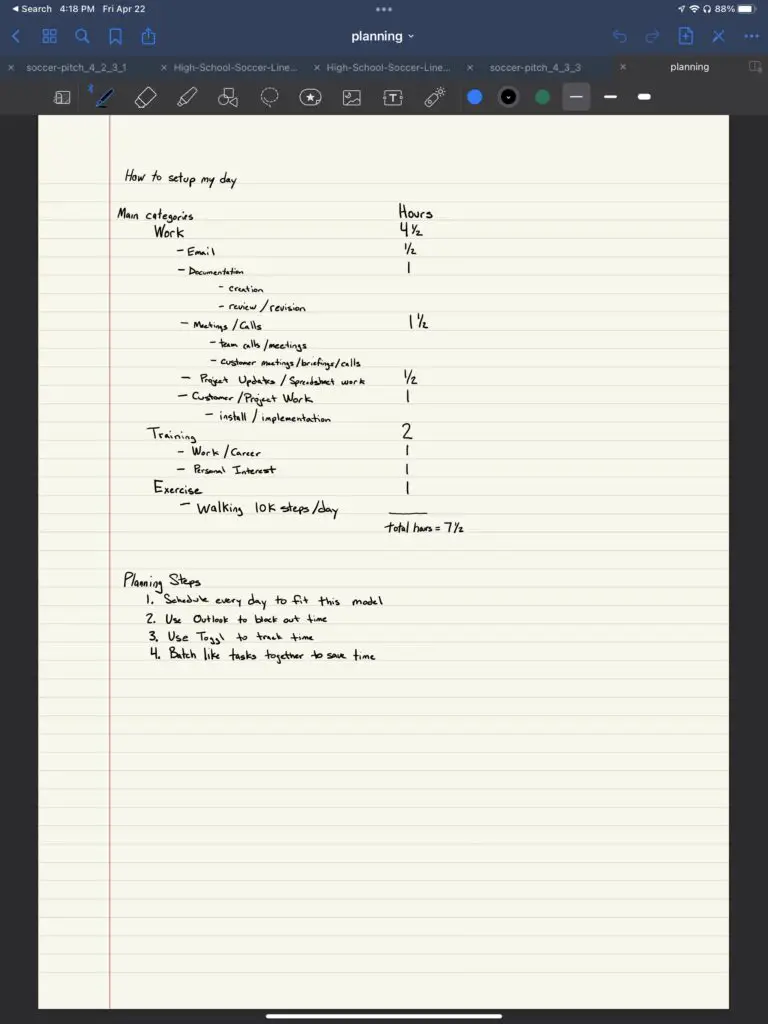 ◀ Search 4:18 PM Fri Apr 22 88%
planning
soccer-pitch_4_2_3_1 High-School-Soccer-Line... High-School-Soccer-Line... soccer-pitch_4_3_3 planning
How to setup my day
Main categories Hours
Work 4 ½
- Email ½
- Documentation 1
- creation
- review / revision
- Meetings / Calls 1 ½
- team calls / meetings
- customer meetings / briefings / calls
- Project Updates / Spreadsheet work ½
- Customer / Project Work 1
- install / implementation
Training 2
- Work / Career 1
- Personal Interest 1
Exercise 1
- Walking 10K steps / day
total hours = 7 ½
Planning Steps
1. Schedule every day to fit this model
2. Use Outlook to block out time
3. Use Toggl to track time
4. Batch like tasks together to save time